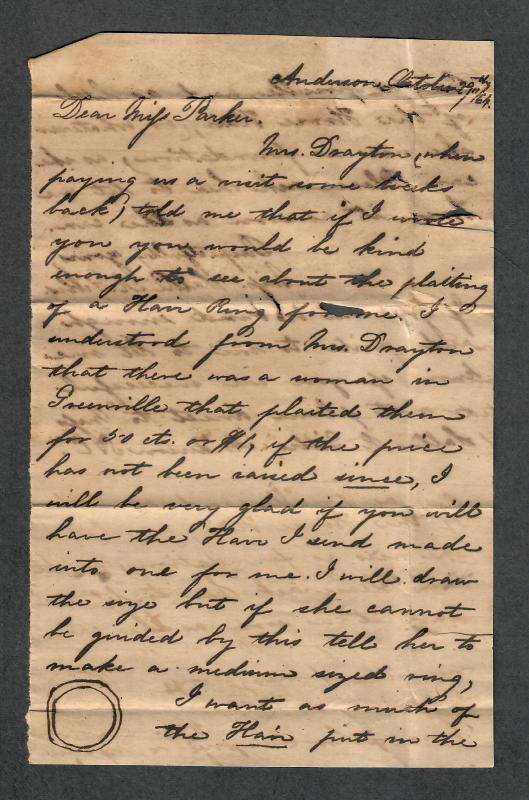 Anderson October 29th /64.
Dear Miss Parker.
Mrs. Drayton, when
paying us a visit some weeks
back, told me that if I wrote
you you would be kind
enough to see about the plaiting
of a Hair Ring for me. I
understood from Mrs. Drayton
that there was a woman in
Greenville that plaited them
for 50 cts. or $1, if the price
has not been raised since, I
will be very glad if you will
have the Hair I send made
into one for me. I will draw
the size but if she cannot
be guided by this tell her to
make a medium sized ring,
I want as much of
the Hair put in the